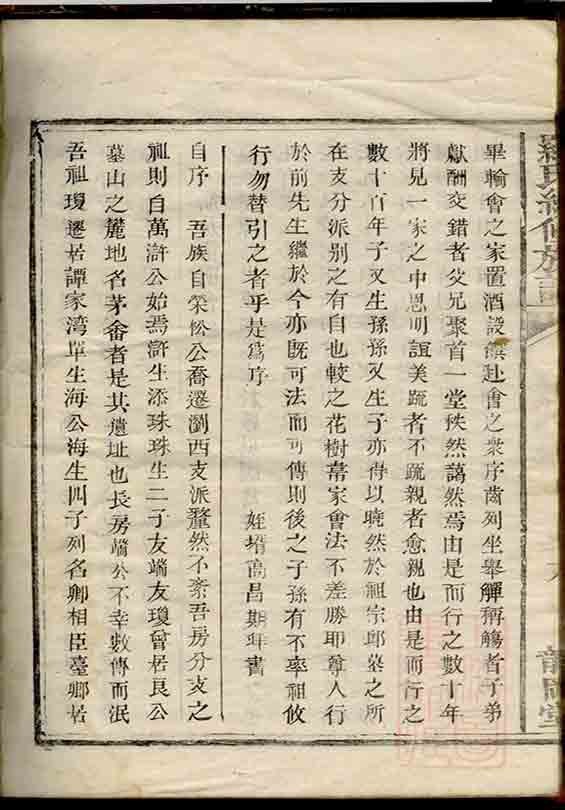 畢輪會之家置酒設饌赴會之衆序齒列坐舉觶稱觴者子弟
獻酬交錯者父兄聚首一堂秩然藹然焉由是而行之數十年
將見一家之中恩明誼美疏者不疏親者愈親也由是而行之
數十百年子又生孫孫又生子亦得以曉然於祖宗邱墓之所
在支分派别之有自也較之花樹韋家會法不差勝耶尊人行
於前先生繼於今亦既可法而可傳則後之子孫有不率祖攸
行勿替引之者乎是爲序
姪壻高昌期拜書
自序 吾族自榮松公喬遷瀏西支派釐然不紊吾房分支之
祖則自萬滸公始焉滸生添珠珠生二子友端友瓊曾居良公
墓山之麓地名茅畬者是其遺址也長房端公不幸數傳而泯
吾祖瓊遷居譚家湾單生海公海生四子列名卿相臣臺卿居